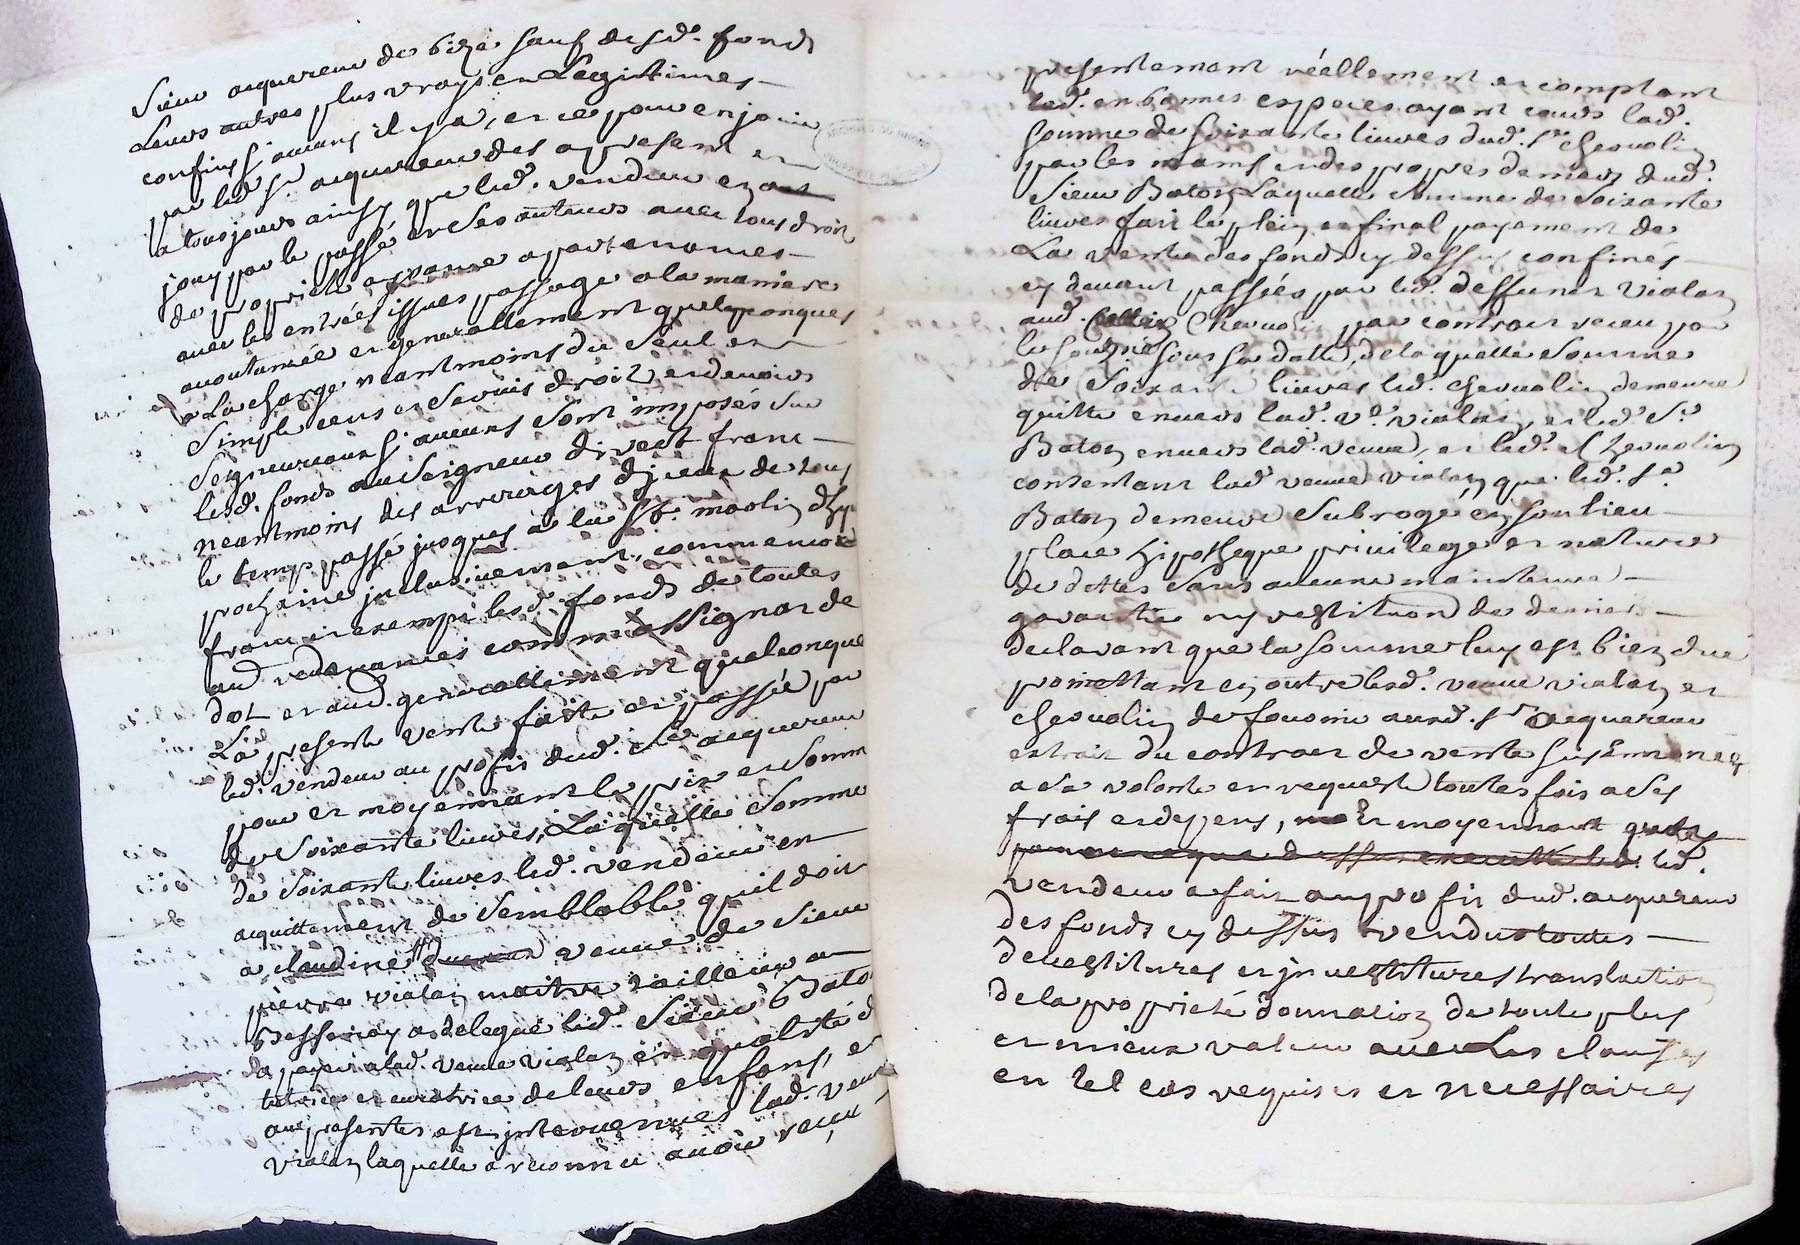 Sieur acquereur de bize sauf desd. fonds
Leurs autres plus vrays et Legitimes
confins si aucuns il y a, et ce pour en jouir
par led. Sr. acquereur des a present et
a tousjours ainsy que led. vendeur en a
jouy par le passé et ses auteurs avec tous droit
de proprieté apartenances
avec les entrées issues passage a la maniere
acoutumée et generallement quelquonques
a La charge neantmoins du Seul et
Simple cens et Servis droit et devoirs
Seigneuriaux si aucuns Sont imposés sur
lesd. fonds au Seigneur direct franc
neantmoins des arrerages d'jceux de tous
le temps passé jusques a la St. martin
prochaine inclusivement, comme encore
franc et exempt lesd. fonds de toutes
aud. redevances comm'assignat de
dot et aud. generallement quelconque
La presente vente faite et passée par
led. vendeur au profit dud. Sr acquereur
pour et moyennant le prix et Somm
de Soixante livres, Laquelle Somme
de Soixante livres led. vendeur en
acquittement de Semblable quil doit
a claudine veuve de Sieur
pierre violay maitre tailleur a
Bessenay a delegué led. Sieur Bato
de payer a lad. veuve violay en qualité d
tutrice et curatrice de leurs enfans, et
aux presentes est intervenue lad. veuv
violay laquelle a reconnu avoir reçeu
presentement réellement et comptant
led. en bonnes especes ayant cours lad.
Somme de Soixante livres dud. Sr Chevrolin
par les mains et des propres deniers dud.
Sieur Baton Laquelle Somme de Soixante
livres fait le plein et final payement de
La vente des fonds cy dessus confinés
cy devant passées par led. deffunt violay
aud. Chevrolin par contract receu par
le Soussigné Sous sa datte, de laquelle Somme
de Soixante livres led. chevrolin demeure
quitte envers lad. ve. violay, et led. Sr
Baton envers lad. veuve, et led. Chevrolin
consentant lad. veuve violay que led. Sr.
Baton demeure Subrogé en Son lieu
place hipotheque privilege et nature
de dettes Sans aucune maintenue
garantie ny restitution de deniers
declarant que la Somme luy est bien due
promettant en outre lesd. veuve violay et
chevrolin de fournir aud. Sr acquereur
extrait du contract de vente Susenoncé
a Sa volonté et requeste toutes fois a Ses
frais et depens, et moyennant
led.
vendeur a fait au profit dud. acquereur
des fonds cy dessus vendus toutes
devestitures et jnvestitures translaction
de la proprieté donnation de toute plus
et mieux valeur avec Les clauses
en tel cas requises et necessaires